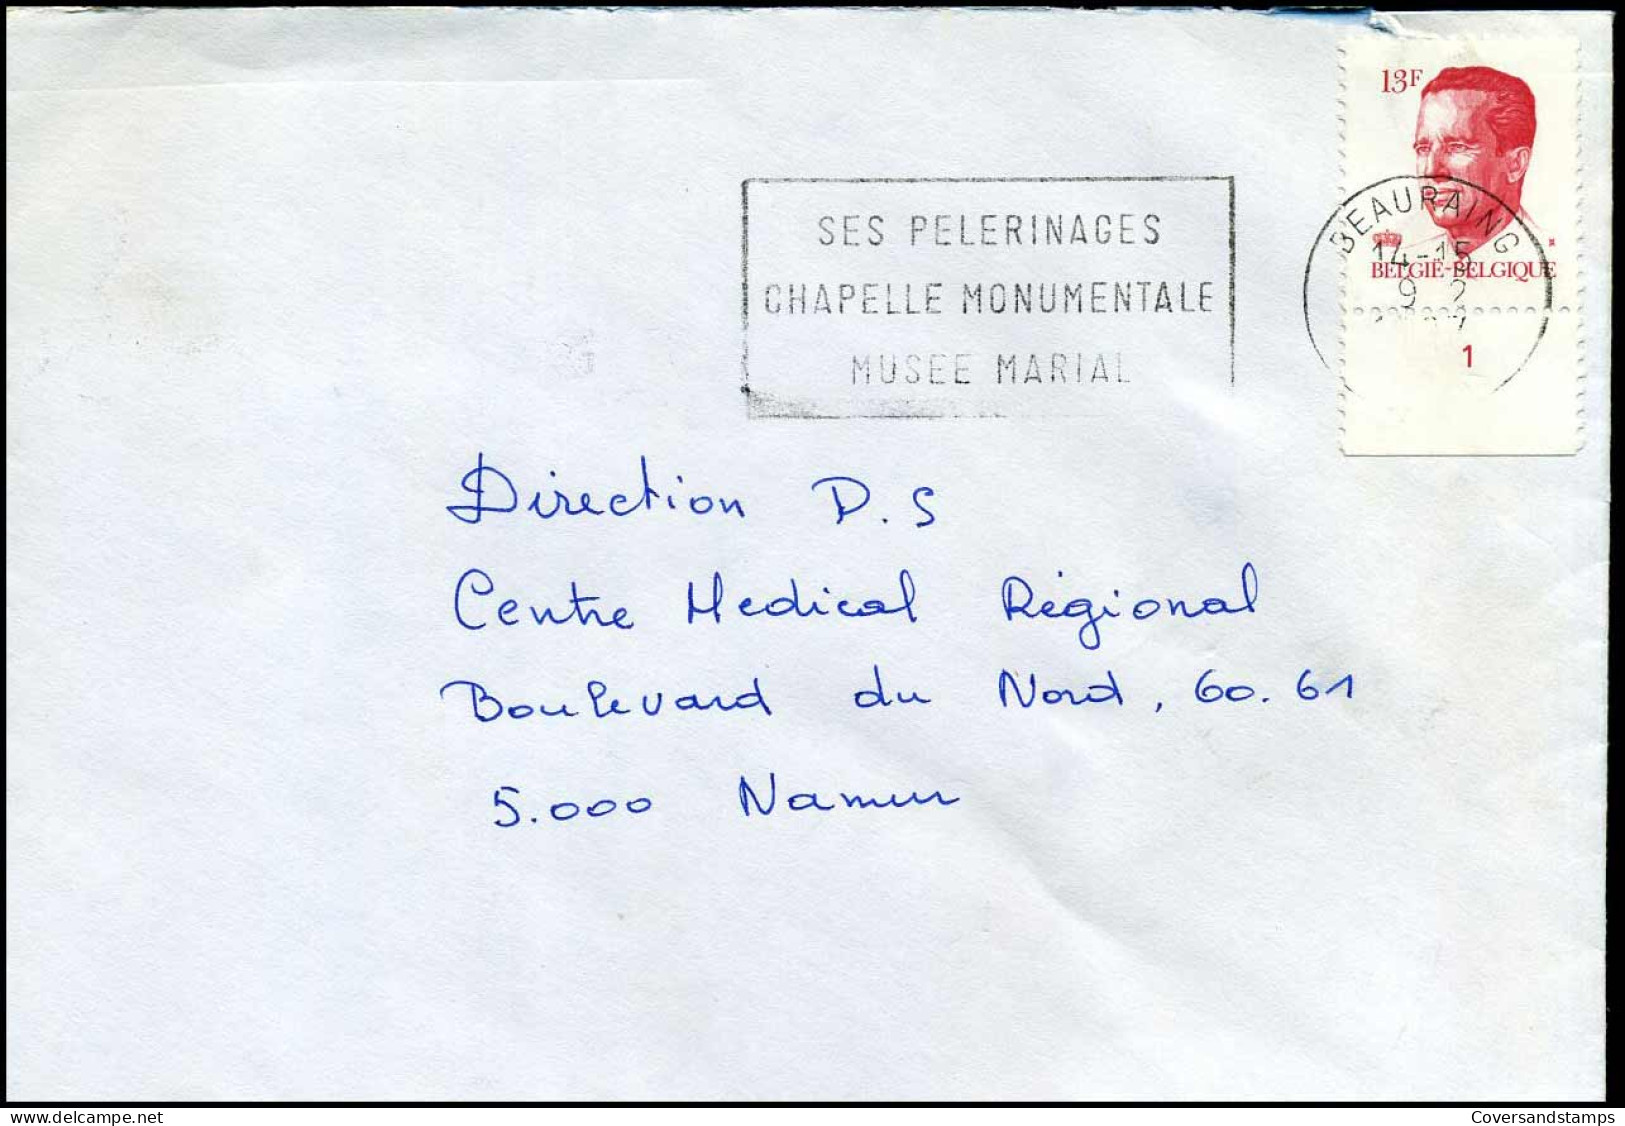 13F
SES PELERINAGES
CHAPELLE MONUMENTALE
MUSEE MARIAL
BEAURAING
14-15
9 2
BELGIË-BELGIQUE
1
Direction P.S
Centre Medical Régional
Boulevard du Nord, 60.61
5.000 Namur
delcampe.net
Coversandstamps